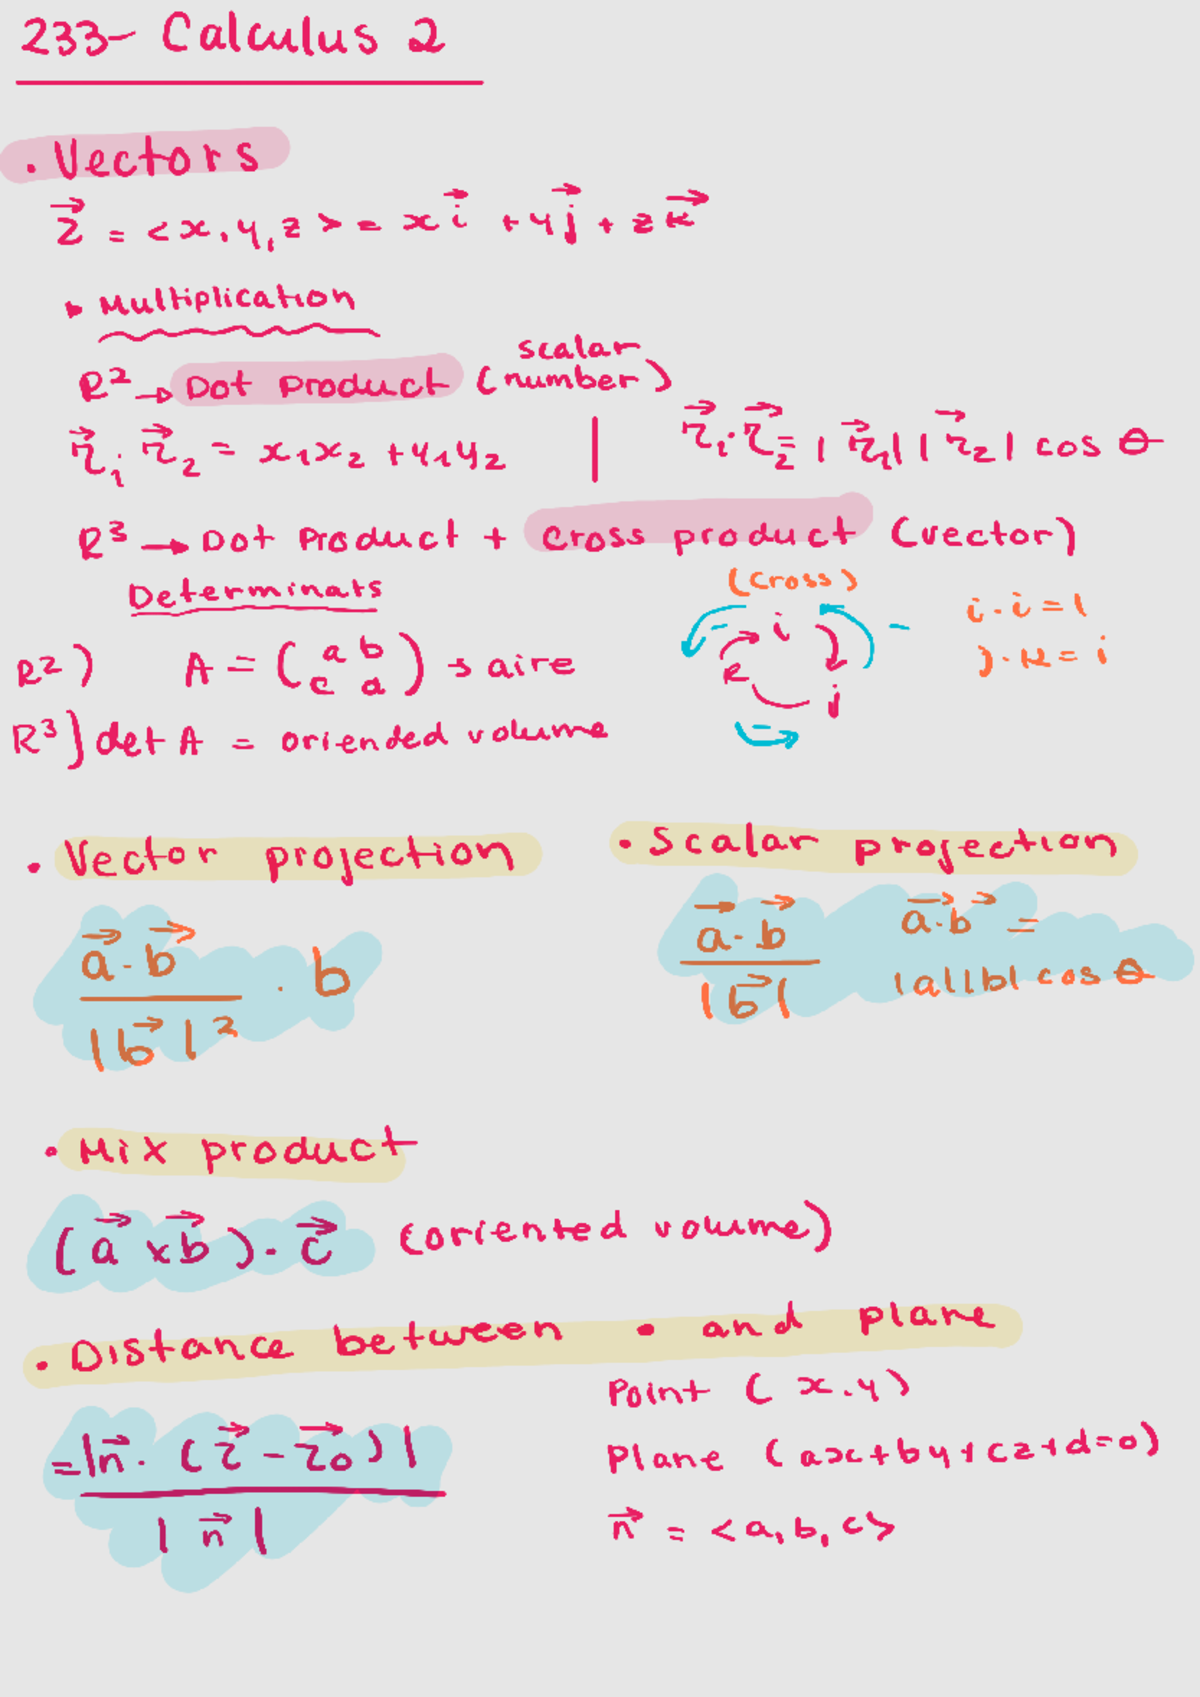 233- Calculus 2
• Vectors
r⃗ = <x, y, z> = x i⃗ + y j⃗ + z k⃗
▸ Multiplication
R² → Dot Product (scalar number)
r⃗₁ r⃗₂ = x₁x₂ + y₁y₂ | r⃗₁ · r⃗₂ = |r⃗₁| |r⃗₂| cos θ
R³ → Dot Product + Cross product (vector)
Determinats
(Cross)
i
j
k
i · i = 1
j · k = i
R²) A = (a b
c d) → aire
R³) det A = oriended volume
• Vector projection
a⃗ · b⃗ / |b⃗|² · b
• Scalar projection
a⃗ · b⃗ / |b⃗|
a⃗ · b⃗ =
|a||b| cos θ
• Mix product
(a⃗ × b⃗) · c⃗ (oriented volume)
• Distance between • and plane
= |n⃗ · (r⃗ - r⃗₀)| / |n⃗|
Point (x, y)
Plane (ax+by+cz+d=0)
n⃗ = <a, b, c>